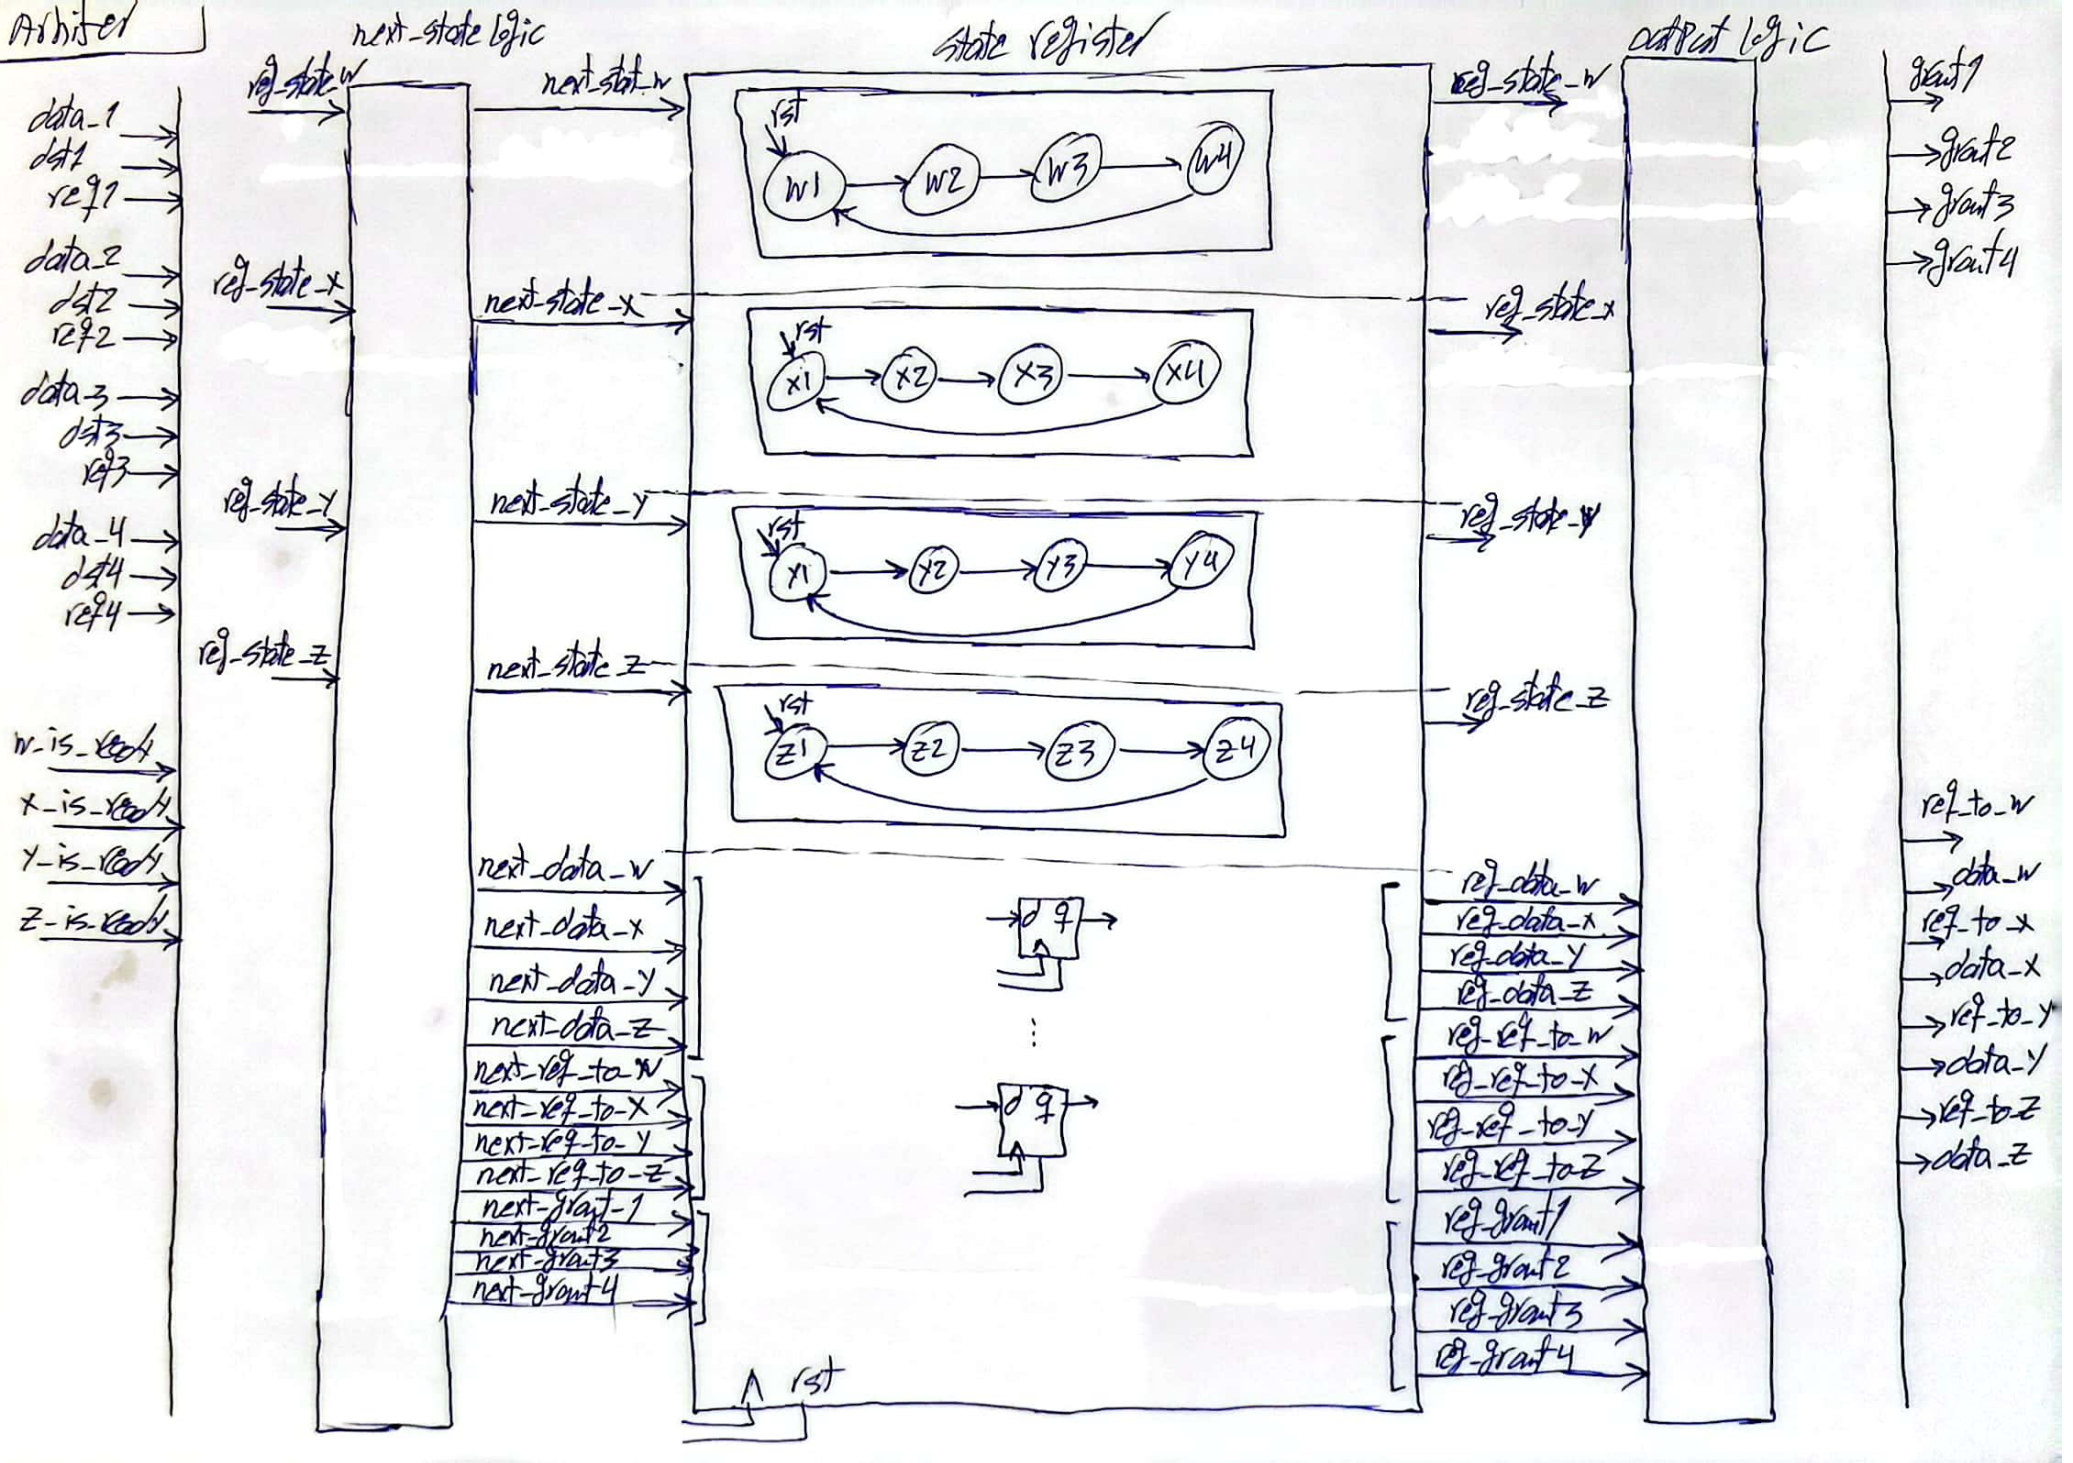 Arbiter
next_state logic
state register
output logic
data_1
dst1
req1
data_2
dst2
req2
data_3
dst3
req3
data_4
dst4
req4
w_is_ready
x_is_ready
y_is_ready
z_is_ready
reg_state_w
reg_state_x
reg_state_y
reg_state_z
next_stat_w
next_state_x
next_state_y
next_state_z
next_data_w
next_data_x
next_data_y
next_data_z
next_req_to_w
next_req_to_x
next_req_to_y
next_req_to_z
next_grant_1
next_grant2
next_grant3
next_grant4
rst
w1 w2 w3 w4
rst
x1 x2 x3 x4
rst
y1 y2 y3 y4
rst
z1 z2 z3 z4
d q
d q
rst
reg_state_w
reg_state_x
reg_state_y
reg_state_z
reg_data_w
reg_data_x
reg_data_y
reg_data_z
reg_req_to_w
reg_req_to_x
reg_req_to_y
reg_req_to_z
reg_grant1
reg_grant2
reg_grant3
reg_grant4
grant1
grant2
grant3
grant4
req_to_w
data_w
req_to_x
data_x
req_to_y
data_y
req_to_z
data_z